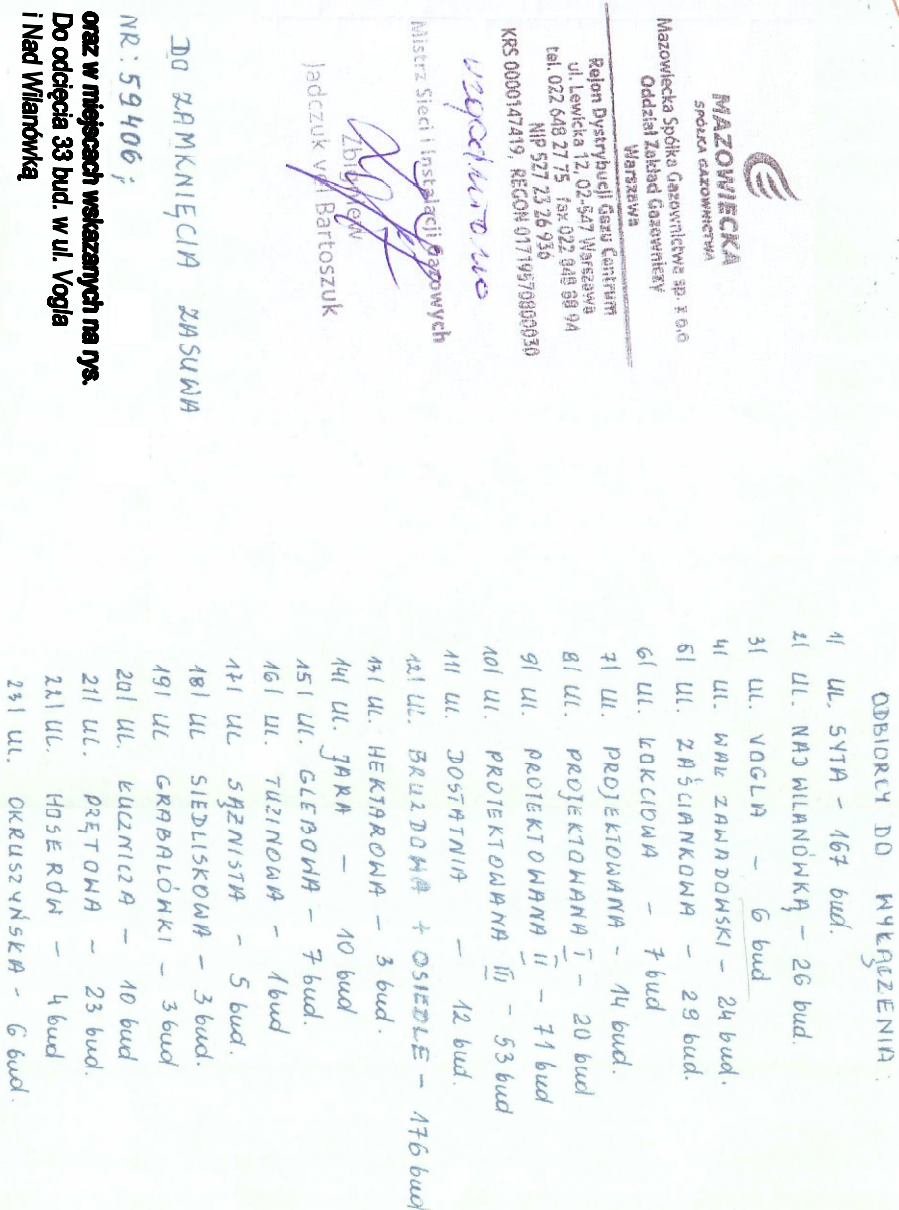 MAZOWIECKA
SPÓŁKA GAZOWNICTWA
Mazowiecka Spółka Gazownictwa sp. z o.o
Oddział Zakład Gazowniczy
Warszawa
Rejon Dystrybucji Gazu Centrum
ul. Lewicka 12, 02-547 Warszawa
tel. 022 648 27 75 fax 022 848 88 94
NIP 527 23 26 936
KRS 0000147419, REGON 01719570800030
uzgodniono
Mistrz Sieci i Instalacji Gazowych
Zbigniew
Jadczuk vel Bartoszuk
DO ZAMKNIĘCIA ZASUWA
NR: 59406;
oraz w miejscach wskazanych na rys.
Do odcięcia 33 bud. w ul. Vogla
i Nad Wilanówką
ODBIORCY DO WYŁĄCZENIA:
1/ UL. SYTA - 167 bud.
2/ UL. NAD WILANÓWKĄ - 26 bud.
3/ UL. VOGLA - 6 bud
4/ UL. WAŁ ZAWADOWSKI - 24 bud.
5/ UL. ZAŚCIANKOWA - 29 bud.
6/ UL. ŁOKCIOWA - 7 bud
7/ UL. PROJEKTOWANA - 14 bud.
8/ UL. PROJEKTOWANA I - 20 bud
9/ UL. PROJEKTOWANA II - 71 bud
10/ UL. PROJEKTOWANA III - 53 bud
11/ UL. DOSTATNIA - 12 bud.
12/ UL. BRUZDOWA + OSIEDLE - 176 bud
13/ UL. HEKTAROWA - 3 bud.
14/ UL. JARA - 10 bud
15/ UL. GLEBOWA - 7 bud.
16/ UL. TUZINOWA - 1 bud
17/ UL SĄŻNISTA - 5 bud.
18/ UL SIEDLISKOWA - 3 bud.
19/ UL GRABALÓWKI - 3 bud
20/ UL. ŁUCZNICZA - 10 bud
21/ UL. PRĘTOWA - 23 bud.
22/ UL. HOSERÓW - 4 bud
23/ UL. OKRUSZYŃSKA - 6 bud.